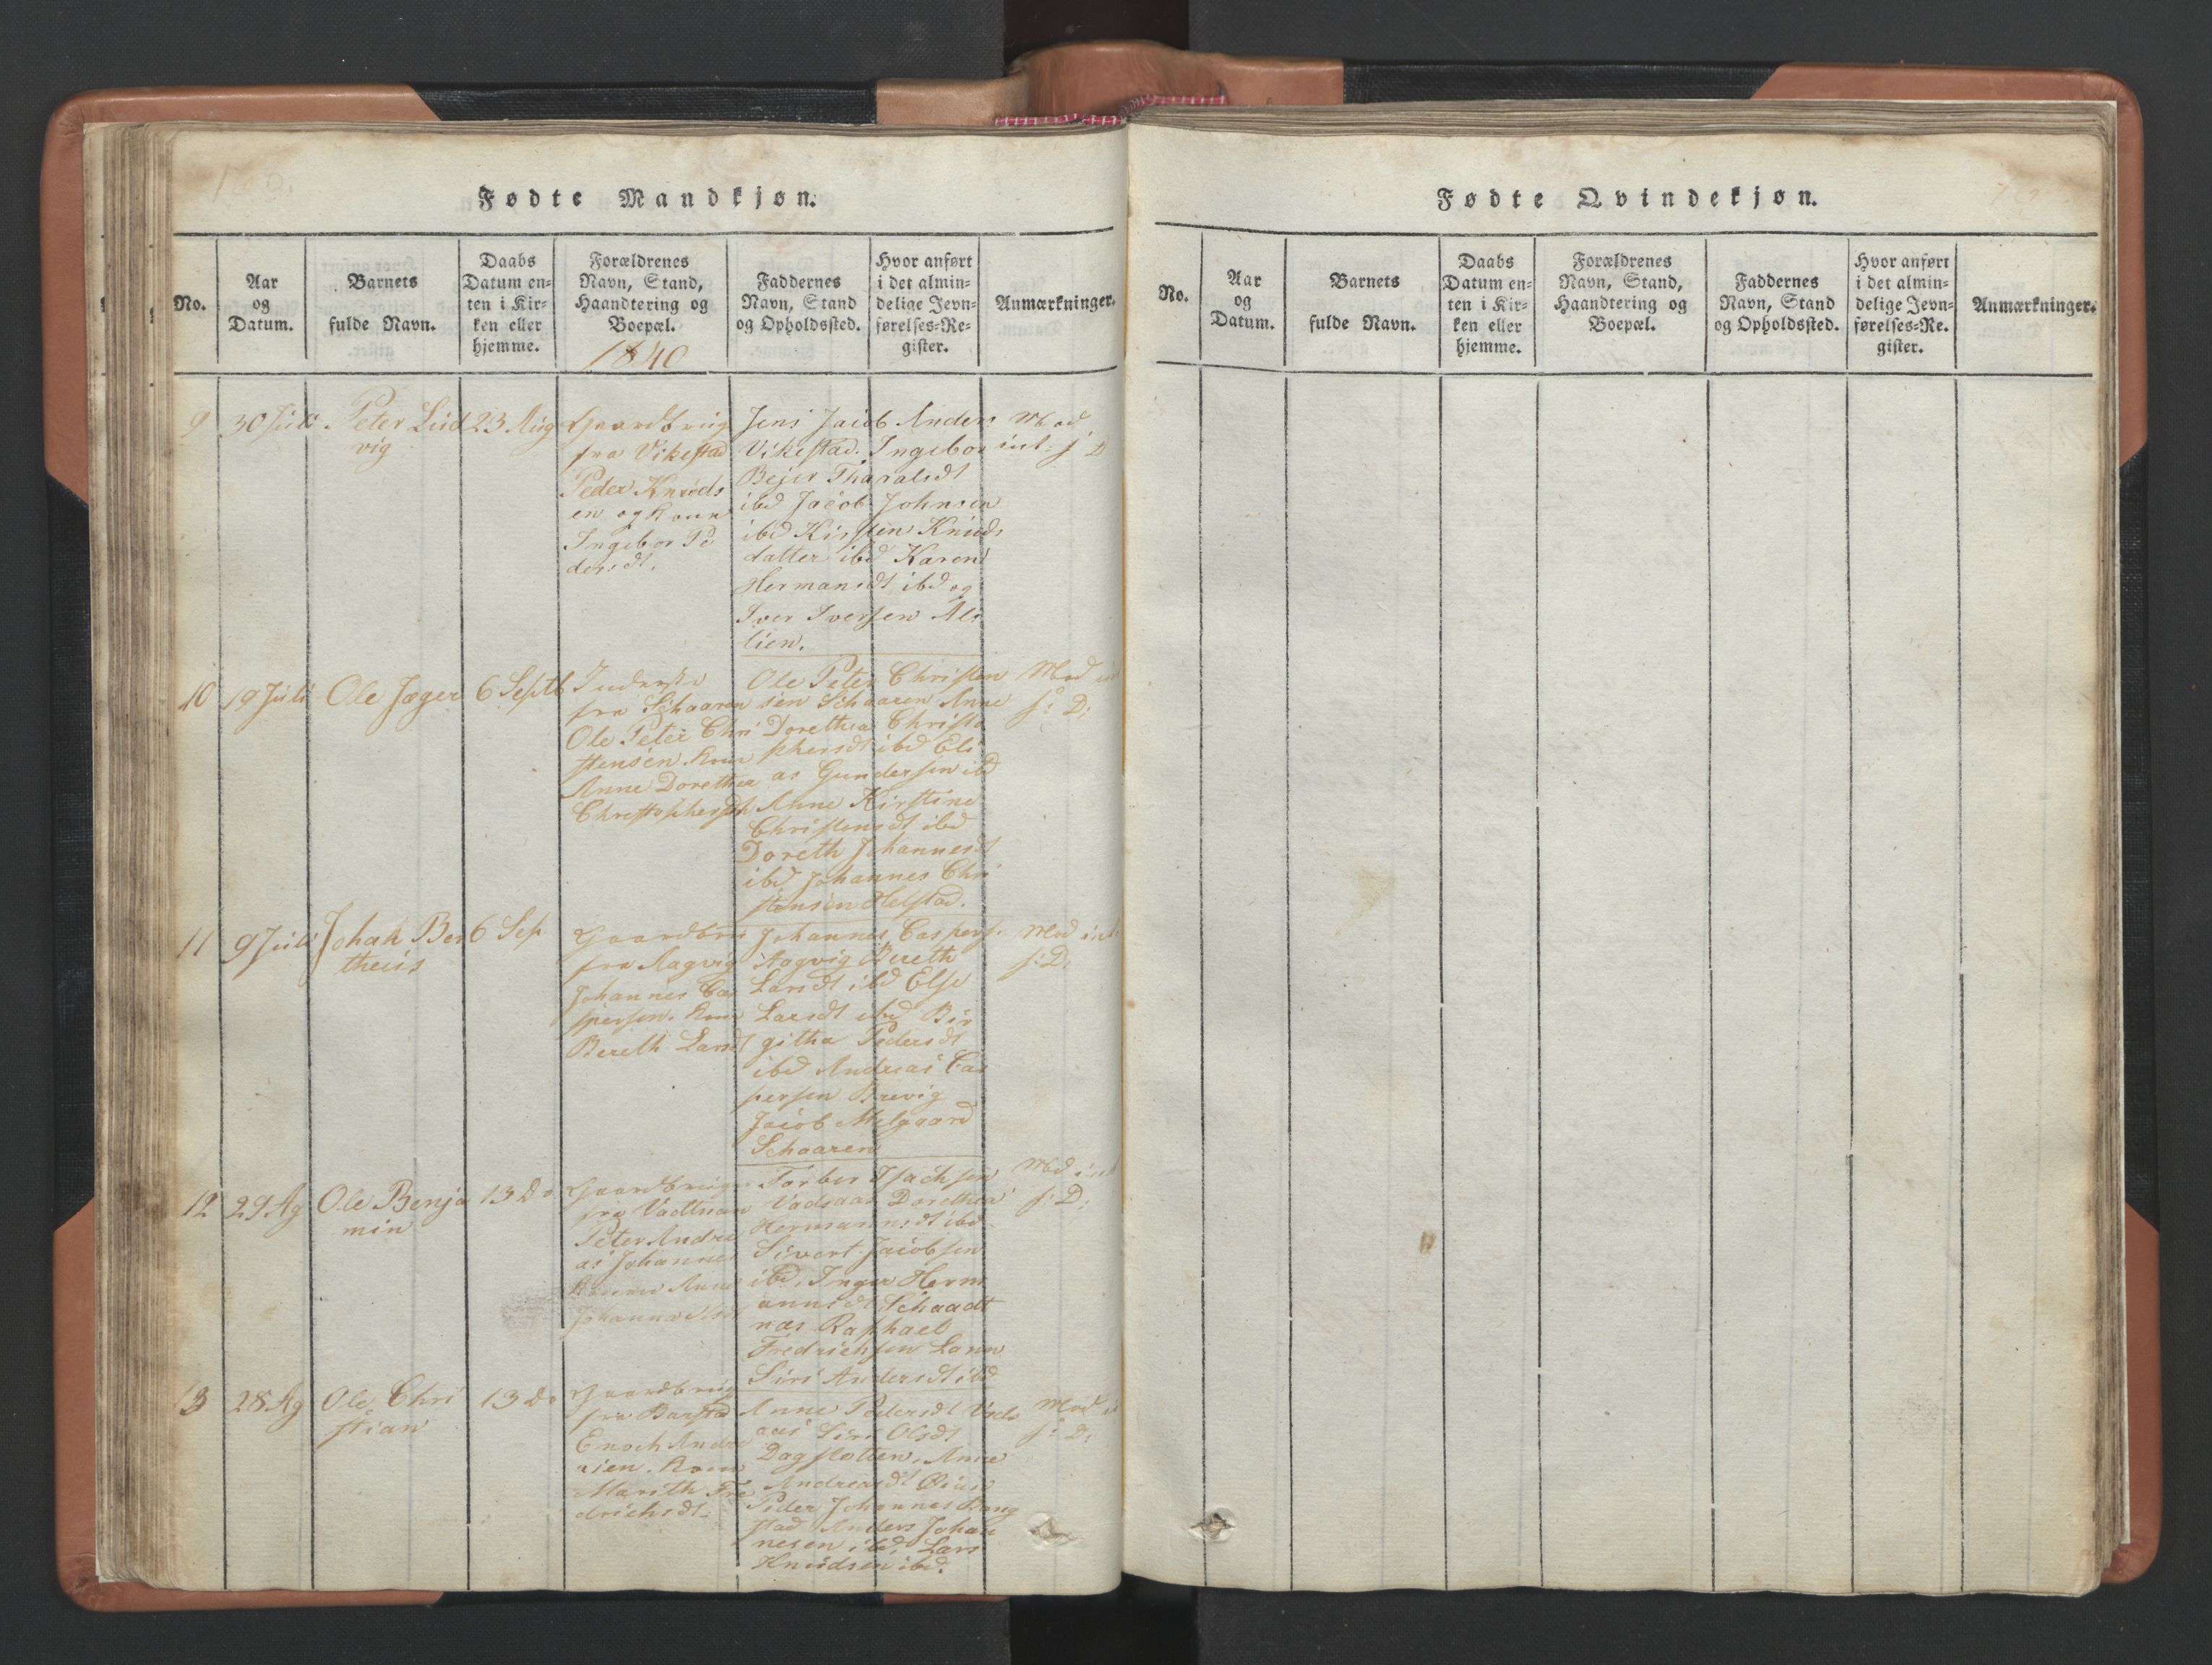 Fødte Mandkjøn.
No.
Aar
og
Datum.
Barnets
fulde Navn.
Daabs
Datum en-
ten i Kir-
ken eller
hjemme.
Forældrenes
Navn, Stand,
Haandtering og
Boepæl.
1840
Faddernes
Navn, Stand
og Opholdssted.
Hvor anført
i det almin-
delige Jevn-
førelses-Re-
gister.
Anmærkninger.
9
30 Juli
Peter Lud
vig
23 Aug
Gaardbrug
fra Vikestad
Peder Knuds
en og kone
Ingebor Pe
dersdt.
Jens Jacob Anders
Vikestad. Ingebor
Bejer Tharalsdt
ibd Jacob Johnsen
ibd Kirsten Knuds
datter ibd Karen
Hermansdt ibd og
Iver Iversen Als
lien.
Mod
int. f D
10
19 Juli
Ole Jæger
6 Septb
Inderste
fra Schaaren
Ole Peter Chri
stensen. kone
Anne Dorethea
Christophersdt
Ole Peter Christen
sen Schaaren Anne
Dorethea Christo
phersdt ibd Eli
as Gundersen ibd
Anne Kirstine
Christensdt ibd
Doreth Johannesdt
ibd Johannes Chri
stensen Helstad.
Mod in
f: D:
11
9 Juli
Johak Ber
theus
6 Sep
Gaardbru
fra Aagvig
Johannes Cas
persen. kone
Bereth Larsdt
Johannes Caspers.
Aagvig Bereth
Larsdt ibd Else
Larsdt ibd Bir
githa Pedersdt
ibd Andreas Cas
persen Brevig
Jacob Melgaard
Schaaren
Mod int
f: D:
12
29 Ag
Ole Benja
min
13 Do
Gaardbrug
fra
Peter Andre
as Johannes
Anne
Johanna
Torber Isachsen
Vadsaas Dorethea
Hermannsdt ibd
Sivert Jacobsen
ibd. Inger Herm
annsdt Schaadt
næs Raphael
Fredrichsen Lann
Siri Andersdt ibd
Mod int
f: D:
13
28 Ag
Ole Chri
stian
13 Do
Gaardbrug
fra Barstad
Enoch Andre
sen. kone
Marith Fre
drichsdt.
Anne Pedersdt Vads
aas Siri Olsdt
Dagslotten, Anne
Andreasdt
Peder Johannes Bang
stad Anders Johan
nesen ibd, Lars
Knudsen ibd.
Mod in
f: D:
Fødte Qvindekjøn.
No.
Aar
og
Datum.
Barnets
fulde Navn.
Daabs
Datum en-
ten i Kir-
ken eller
hjemme.
Forældrenes
Navn, Stand,
Haandtering og
Boepæl.
Faddernes
Navn, Stand
og Opholdssted.
Hvor anført
i det almin-
delige Jevn-
førelses-Re-
gister.
Anmærkninger.